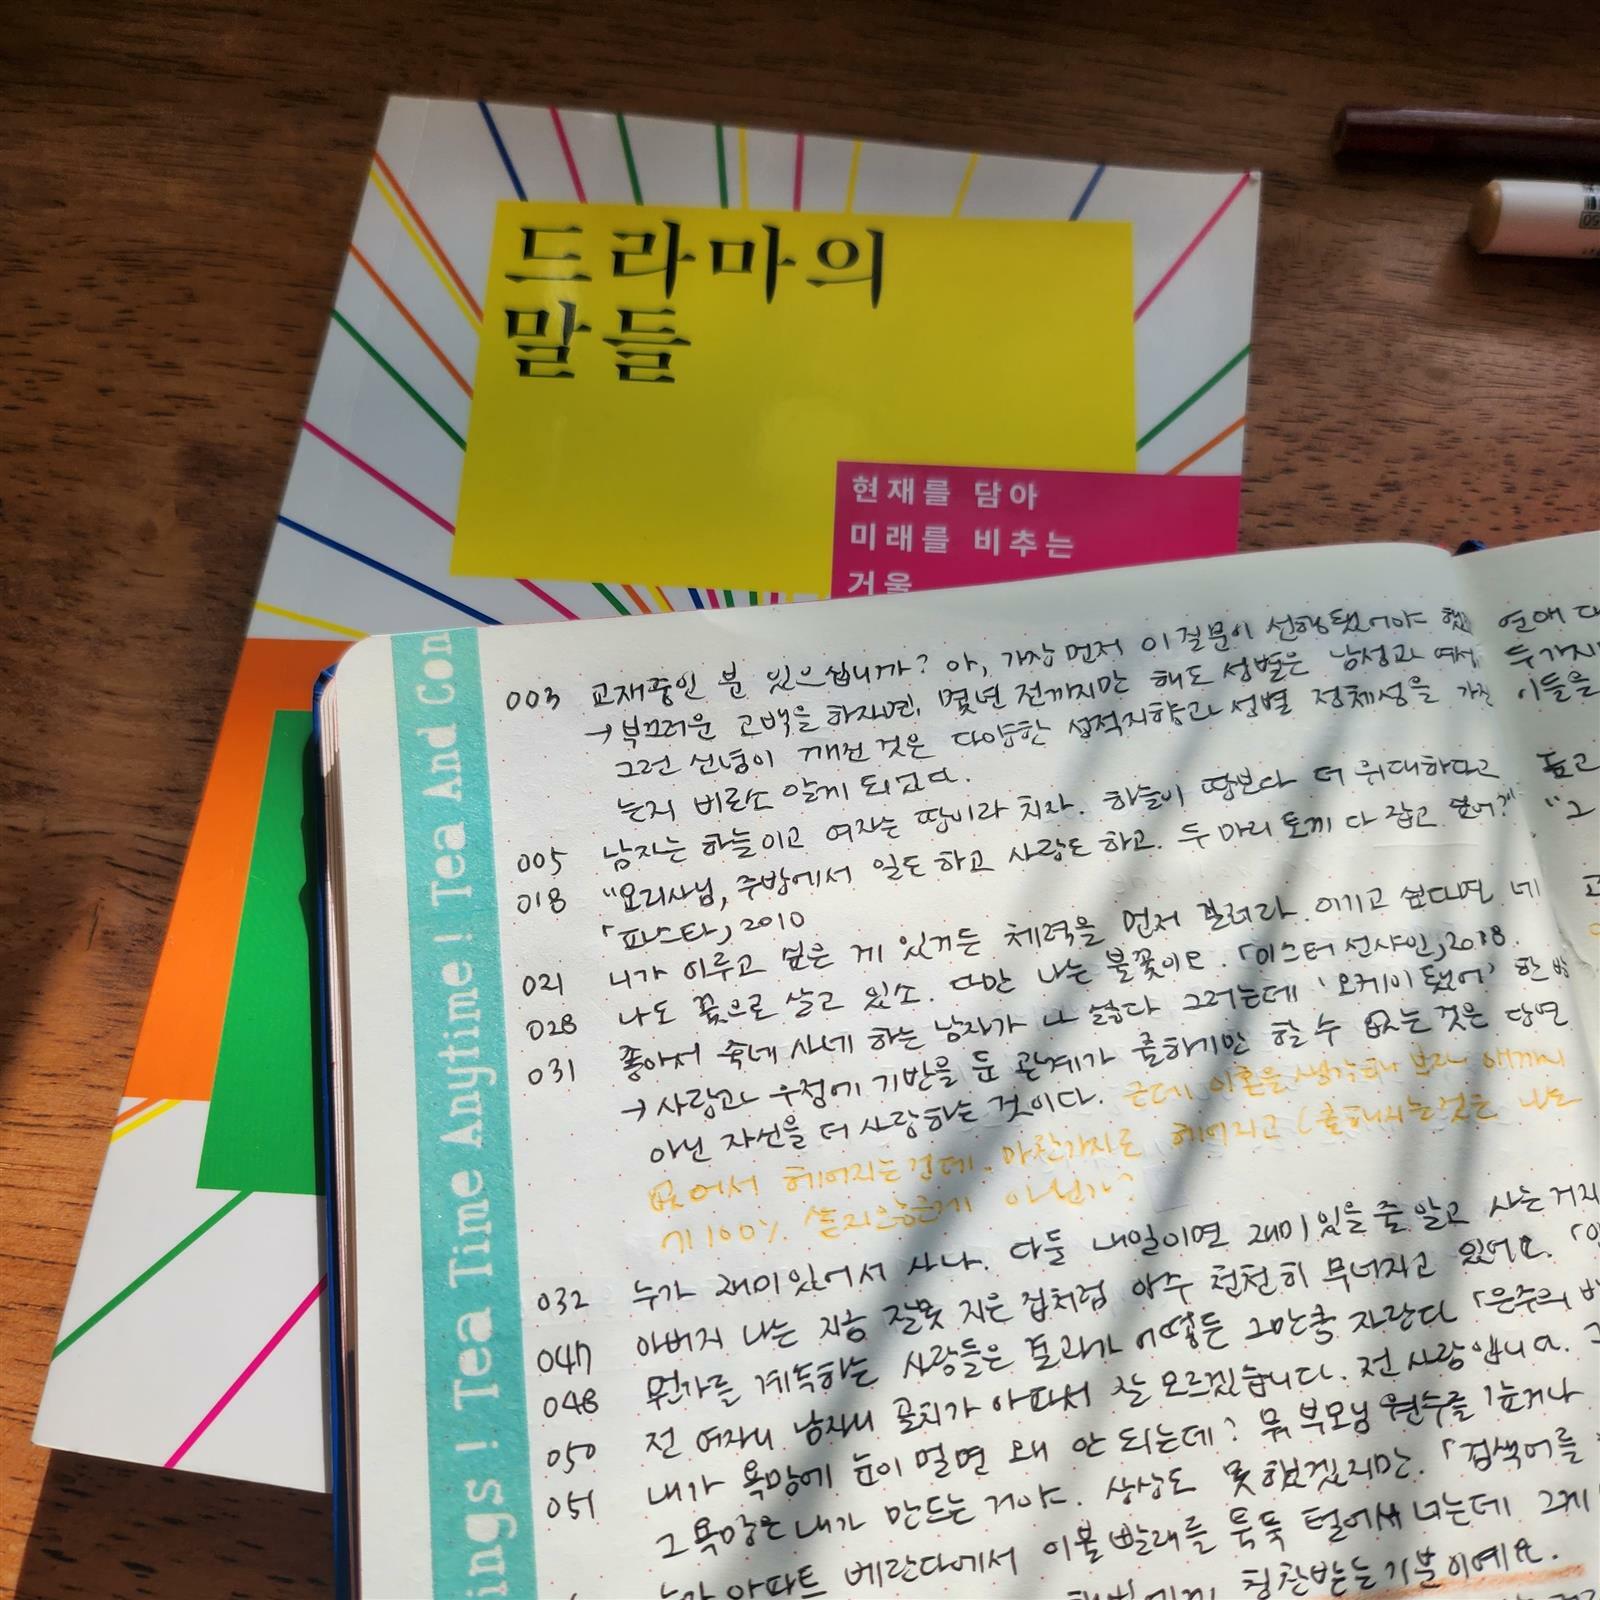 드라마의
말들
현재를 담아
미래를 비추는
거울
Tea Time Anytime! Tea And Con
ings! 
003 교제중인 분 있으십니까? 아, 가장 먼저 이 질문이 선행됐어야 했
→ 부끄러운 고백을 하자면, 몇년 전까지만 해도 성별은 남성과 여성
그런 신념이 깨진 것은 다양한 성적지향과 성별 정체성을 가진 이들을
는지 비로소 알게 되었다.
005 남자는 하늘이고 여자는 땅이라 치자. 하늘이 땅보다 더 위대하다고
018 "요리사님, 주방에서 일도 하고 사랑도 하고. 두 마리 토끼 다 잡고 싶어?"
「파스타」, 2010
021 니가 이루고 싶은 게 있거든 체력을 먼저 길러라. 이기고 싶다면 네
028 나도 꽃으로 살고 있소. 다만 나는 불꽃이오. 「미스터 선샤인」, 2018.
031 좋아서 죽네 사네 하는 남자가 나 싫다 그러는데 '오케이 됐어' 한 방
→ 사랑과 우정에 기반을 둔 관계가 출하기만 할 수 없는 것은 당연
아닌 자신을 더 사랑하는 것이다. 근데 이혼을 생각해 보자
없어서 헤어지는건데. 마찬가지로 헤어지고
기 100% 아닌가?
032 누가 재미있어서 사나. 다들 내일이면 재미있을 줄 알고 사는거지
047 아버지 나는 지금 잘못 지은 집처럼 아주 천천히 무너지고 있어요.
048 뭔가를 계속하는 사람들은 결과가 어떻든 그만큼 자란다 「은주의 방
050 전 여자니 남자니 골치가 아파서 잘 모르겠습니다. 전 사람입니다.
051 내가 욕망에 눈이 멀면 왜 안 되는데? 뭐 부모님 원수를
그 욕망은 내가 만드는 거야. 상상도 못했겠지만. 「검색어를
아파트 베란다에서 이불 빨래를 툭툭 털어서 너는데 그게
칭찬받는 기분이에요.
연애
두가지